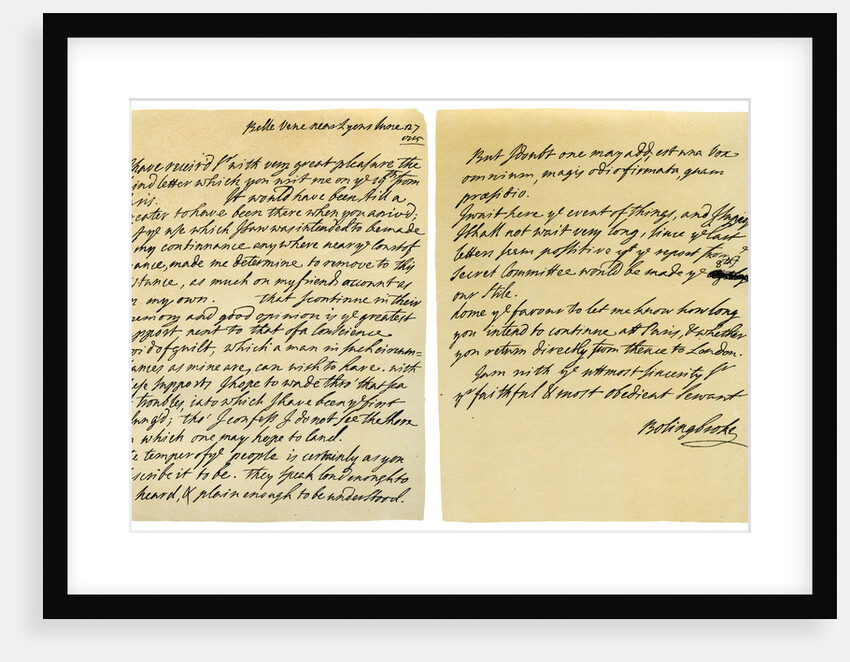 Belle Vene near Lyons June 27
1715
have receiv'd Sr with very great pleasure the
ind letter which you writ me on ye 19th from
ris. It would have been still a
eater to have been there when you arriv'd;
t ye use which I saw was intended to be made
my continuance any where near ye Coast of
ance, made me determine to remove to this
stance, as much on my friends account as
n my own. That I continue in their
union and good opinion is ye greatest
pport next to that of a Conscience
oid of guilt, which a man in such circum=
ances as mine are, can wish to have. with
ese supports I hope to wade thro' that sea
troubles, into which I have been ye first
lung'd; tho' I confess I do not see the shore
n which one may hope to land.
e temper of ye people is certainly as you
scribe it to be. They speak loud enough to
heard, & plain enough to be understood.
But I doubt one may add, est una vox
omnium, magis odio firmata, quam
præsidio.
I wait here ye event of things, and I suppose
I shall not wait very long, since ye last
letters seem possitive yt ye report from ye
Secret Committee would be made ye
our Stile.
done ye favour to let me know how long
you intend to continue att Paris, & whether
you return directly from thence to London.
I am with ye uttmost sincerity Sr
yr faithfull & most obedient servant
Bolingbroke